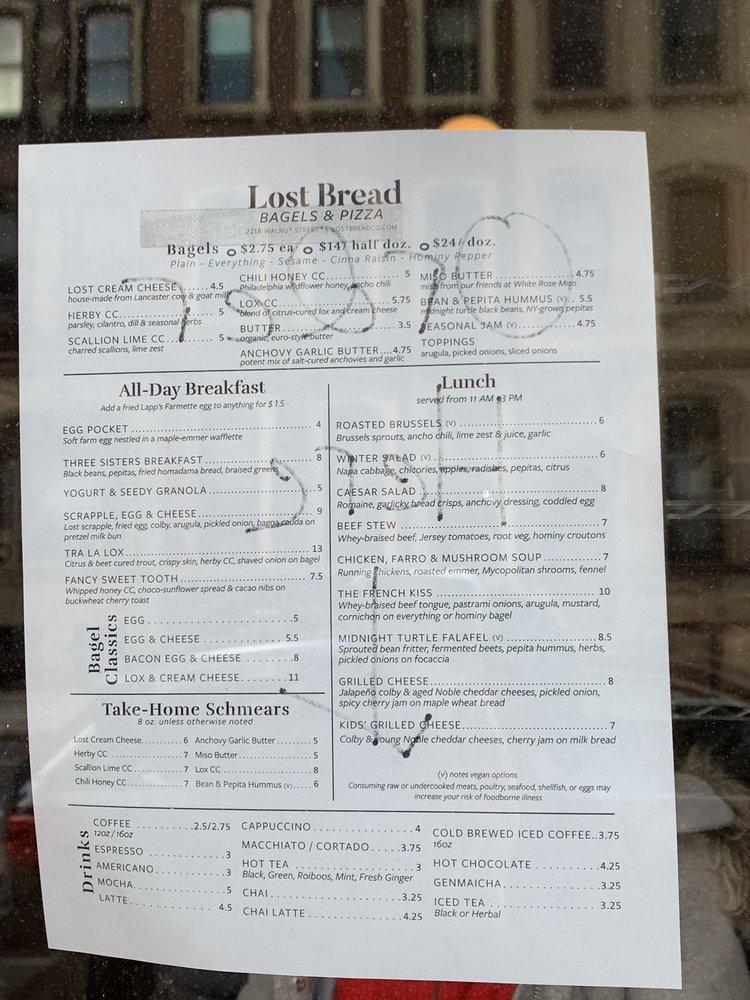 Lost Bread
BAGELS & PIZZA
2218 WALNUT STREET | LOSTBREADCO.COM
Bagels o $2.75 ea o $14/ half doz. o $24/ doz.
Plain - Everything - Sesame - Cinna Raisin - Hominy Pepper
LOST CREAM CHEESE 4.5
house-made from Lancaster cow & goat milk
HERBY CC 5
parsley, cilantro, dill & seasonal herbs
SCALLION LIME CC 5
charred scallions, lime zest
CHILI HONEY CC 5
Philadelphia wildflower honey, ancho chili
LOX CC 5.75
blend of citrus-cured lox and cream cheese
BUTTER 3.5
organic, euro-style butter
ANCHOVY GARLIC BUTTER 4.75
potent mix of salt-cured anchovies and garlic
MISO BUTTER 4.75
miso from our friends at White Rose Miso
BEAN & PEPITA HUMMUS (V) 5.5
midnight turtle black beans, NY-grown pepitas
SEASONAL JAM (V) 4.75
TOPPINGS
arugula, picked onions, sliced onions
All-Day Breakfast
Add a fried Lapp's Farmette egg to anything for $1.5
EGG POCKET 4
Soft farm egg nestled in a maple-emmer wafflette
THREE SISTERS BREAKFAST 8
Black beans, pepitas, fried homadama bread, braised greens
YOGURT & SEEDY GRANOLA 5
SCRAPPLE, EGG & CHEESE 9
Lost scrapple, fried egg, colby, arugula, pickled onion, bagna cauda on
pretzel milk bun
TRA LA LOX 13
Citrus & beet cured trout, crispy skin, herby CC, shaved onion on bagel
FANCY SWEET TOOTH 7.5
Whipped honey CC, choco-sunflower spread & cacao nibs on
buckwheat cherry toast
Bagel
Classics
EGG 5
EGG & CHEESE 5.5
BACON EGG & CHEESE 8
LOX & CREAM CHEESE 11
Take-Home Schmears
8 oz. unless otherwise noted
Lost Cream Cheese 6
Herby CC 7
Scallion Lime CC 7
Chili Honey CC 7
Anchovy Garlic Butter 5
Miso Butter 5
Lox CC 8
Bean & Pepita Hummus (V) 6
Lunch
served from 11 AM - 3 PM
ROASTED BRUSSELS (V) 6
Brussels sprouts, ancho chili, lime zest & juice, garlic
WINTER SALAD (V) 6
Napa cabbage, chicories, apples, radishes, pepitas, citrus
CAESAR SALAD 8
Romaine, garlicky bread crisps, anchovy dressing, coddled egg
BEEF STEW 7
Whey-braised beef, Jersey tomatoes, root veg, hominy croutons
CHICKEN, FARRO & MUSHROOM SOUP 7
Running chickens, roasted emmer, Mycopolitan shrooms, fennel
THE FRENCH KISS 10
Whey-braised beef tongue, pastrami onions, arugula, mustard,
cornichon on everything or hominy bagel
MIDNIGHT TURTLE FALAFEL (V) 8.5
Sprouted bean fritter, fermented beets, pepita hummus, herbs,
pickled onions on focaccia
GRILLED CHEESE 8
Jalapeño colby & aged Noble cheddar cheeses, pickled onion,
spicy cherry jam on maple wheat bread
KIDS' GRILLED CHEESE 7
Colby & young Noble cheddar cheeses, cherry jam on milk bread
(v) notes vegan options
Consuming raw or undercooked meats, poultry, seafood, shellfish, or eggs may
increase your risk of foodborne illness
Drinks
COFFEE 2.5/2.75
12oz / 16oz
ESPRESSO 3
AMERICANO 3
MOCHA 5
LATTE 4.5
CAPPUCCINO 4
MACCHIATO / CORTADO 3.75
HOT TEA 3
Black, Green, Roiboos, Mint, Fresh Ginger
CHAI 3.25
CHAI LATTE 4.25
COLD BREWED ICED COFFEE 3.75
16oz
HOT CHOCOLATE 4.25
GENMAICHA 3.25
ICED TEA 3.25
Black or Herbal